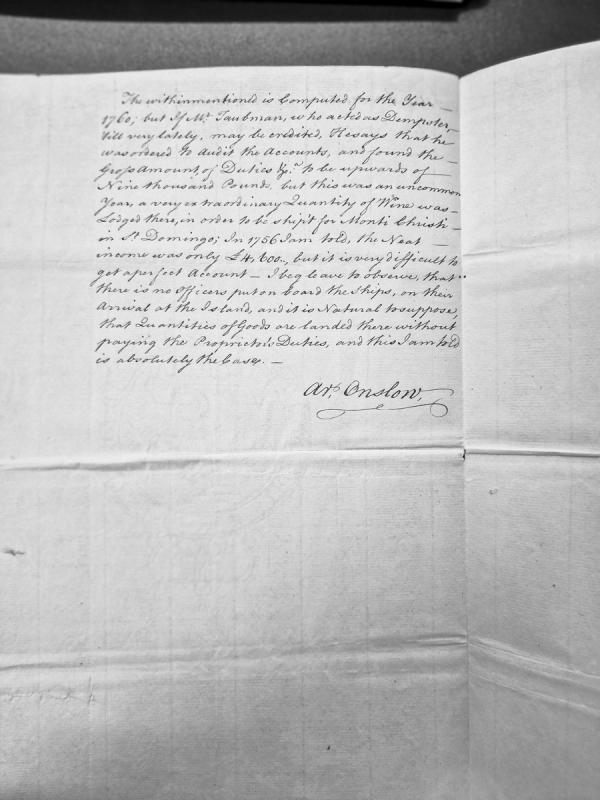 The withinmentioned is Computed for the Year —
1760; but If Mr. Taubman, who acted as Dempster,
till very lately, may be credited, He says that he
was ordered to Audit the Accounts, and found the —
Gross Amount, of Duties &ca. to be upwards of —
Nine thousand Pound, but this was an uncommon
Year, a very extraordinary Quantity of Wine was —
Lodged there, in order to be shipt for Monti Christi —
in St. Domingo; In 1756 I am told, the Neat —
income was only £4,600.., but it is very difficult to
get a perfect Account — I beg leave to observe, that
there is no Officers put on board the Ships, on their
Arrival at the Island, and it is Natural to suppose,
that Quantities of Goods are landed there without
paying the Proprietr's Duties, and this I am told
is absolutely the Case. —
Ar. Onslow,